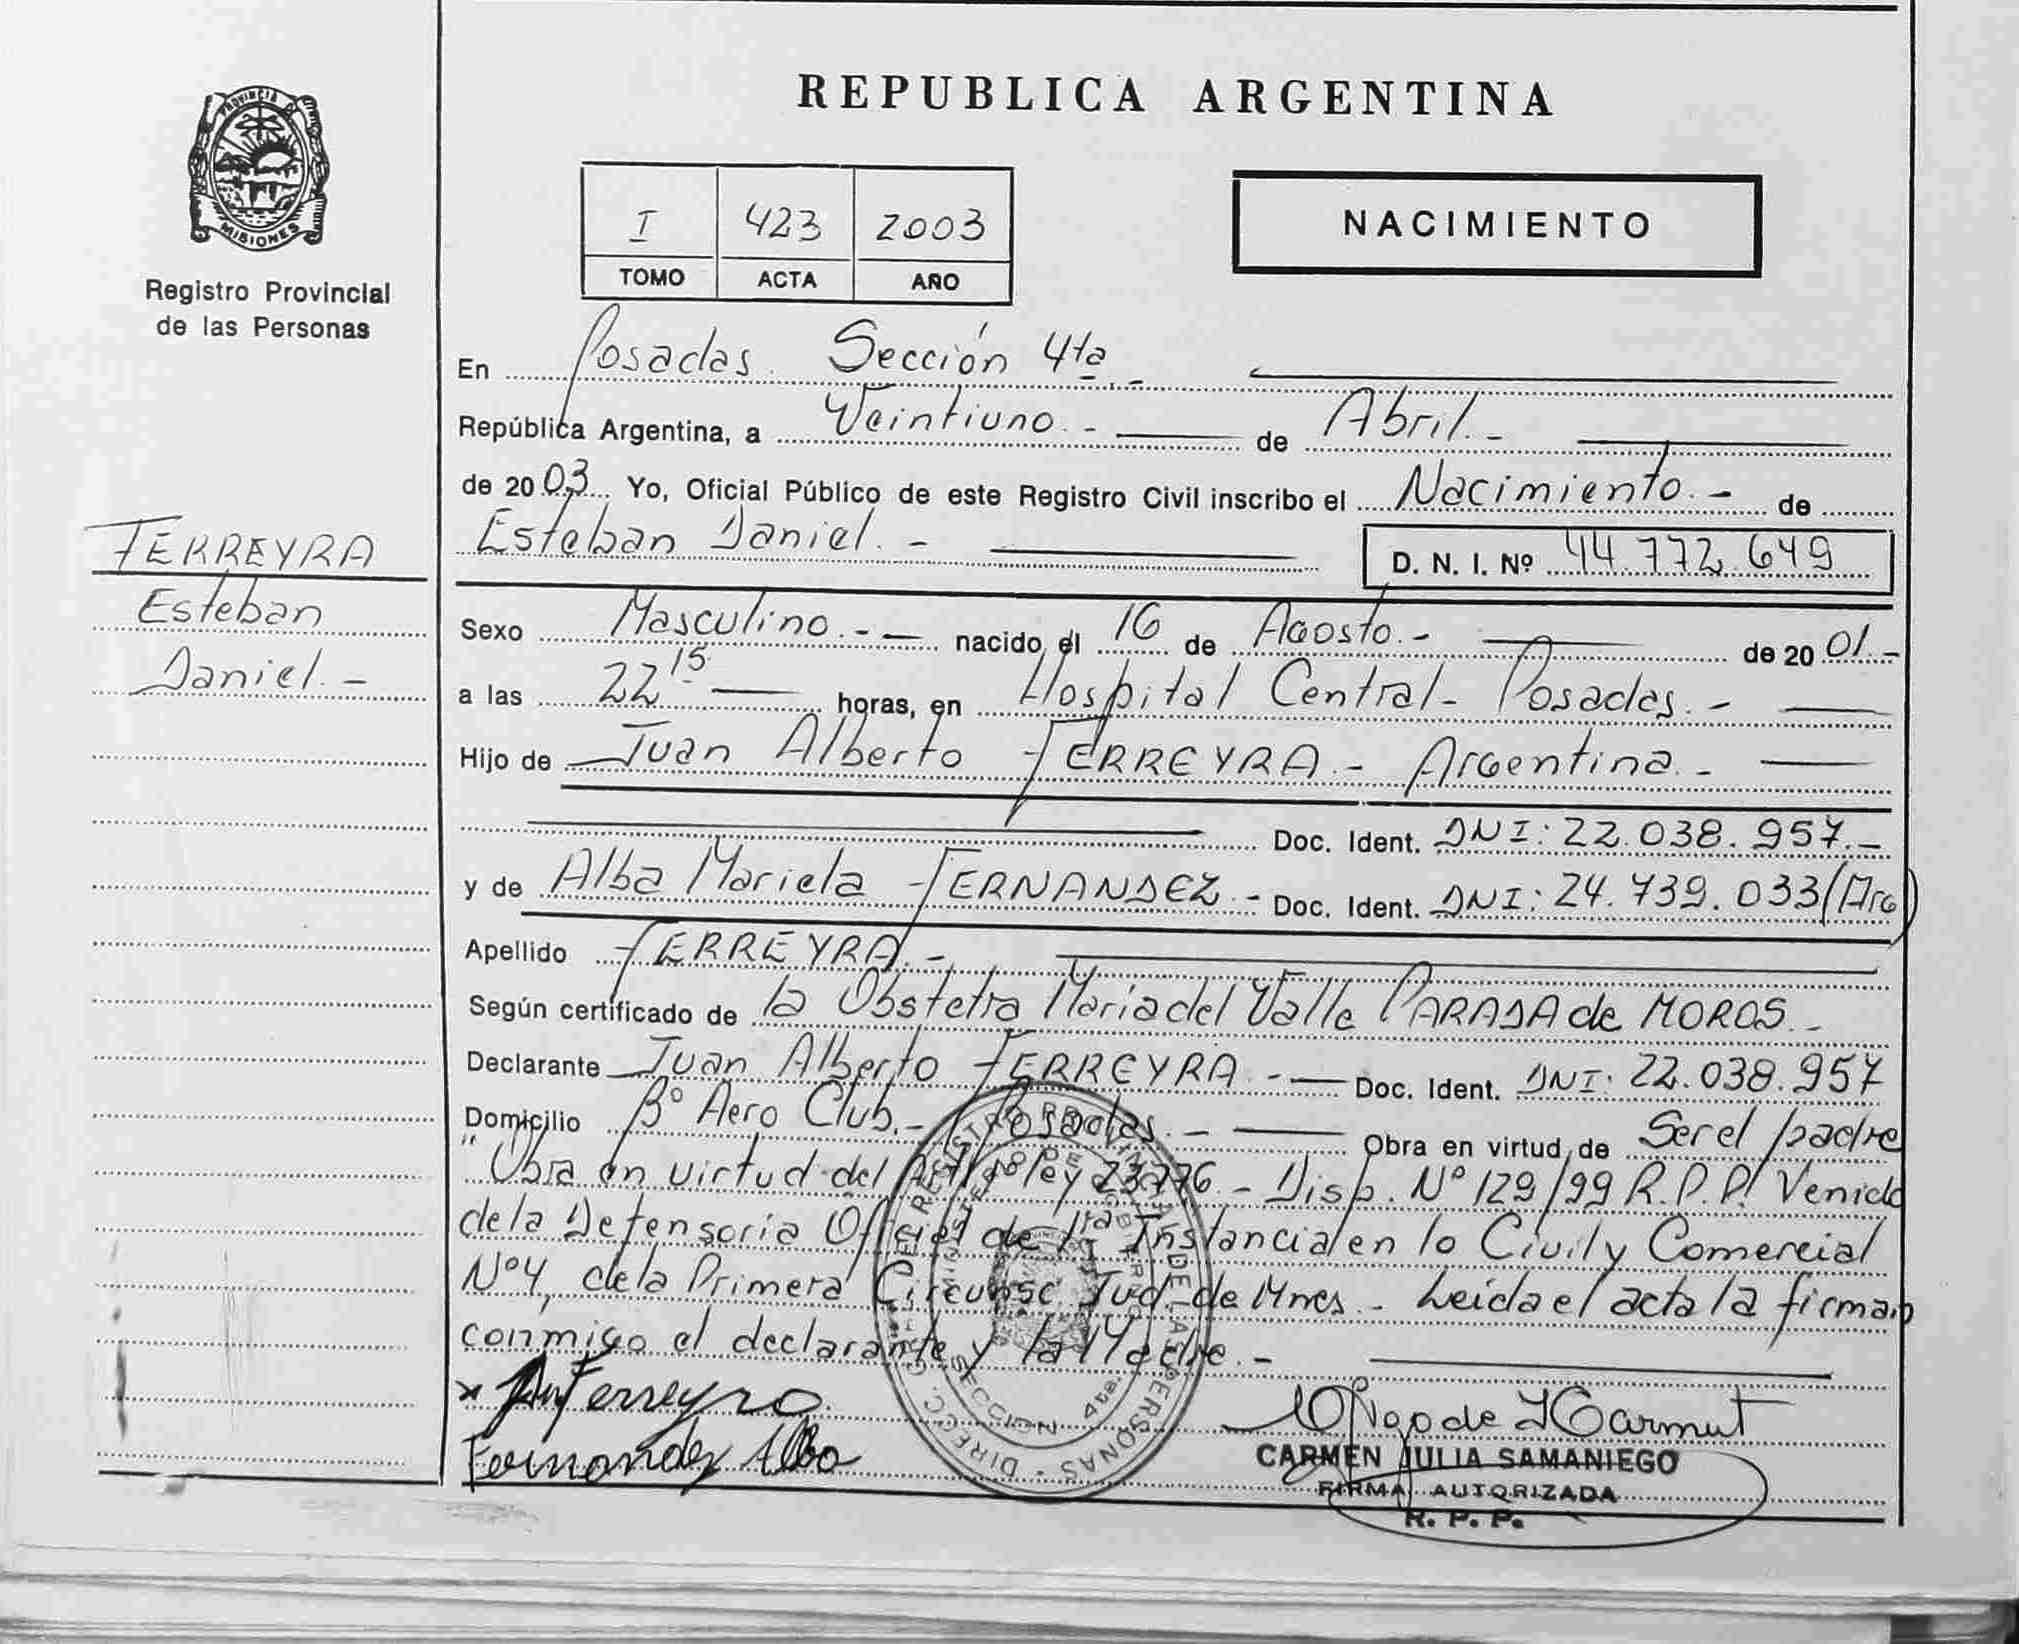 REPUBLICA ARGENTINA
PROVINCIA DE
MISIONES
Registro Provincial
de las Personas
I 423 2003
TOMO ACTA AÑO
NACIMIENTO
En Posadas. Sección 4ta. -
República Argentina, a Veintiuno. - de Abril. -
de 2003 Yo, Oficial Público de este Registro Civil inscribo el Nacimiento. - de
Esteban Daniel. - D. N. I. Nº 44.772.649
FERREYRA
Esteban
Daniel. -
Sexo Masculino. - nacido el 16 de Agosto. - de 2001. -
a las 22 15 horas, en Hospital Central - Posadas. -
Hijo de Juan Alberto FERREYRA. - Argentina. -
Doc. Ident. DNI: 22.038.957. -
y de Alba Mariela FERNANDEZ. - Doc. Ident. DNI: 24.739.033 (Arg)
Apellido FERREYRA. -
Según certificado de la Obstetra Maria del Valle PARADA de MOROS. -
Declarante Juan Alberto FERREYRA. - Doc. Ident. DNI: 22.038.957
Domicilio Bº Aero Club. - Posadas. - Obra en virtud de Ser el padre
"Obra en virtud del ley 23776. - Disp. Nº 129/99 R.P.P. Venido
de la Defensoria Oficial de 1ra Instancia en lo Civil y Comercial
Nº4, de la Primera Circunsc Jud. de Mnes. - Leida el acta la firman
conmigo el declarante y la Madre. -
Ferreyra
Fernandez Alba
CARMEN JULIA SAMANIEGO
FIRMA AUTORIZADA
R. P. P.
SECCION 4ta.